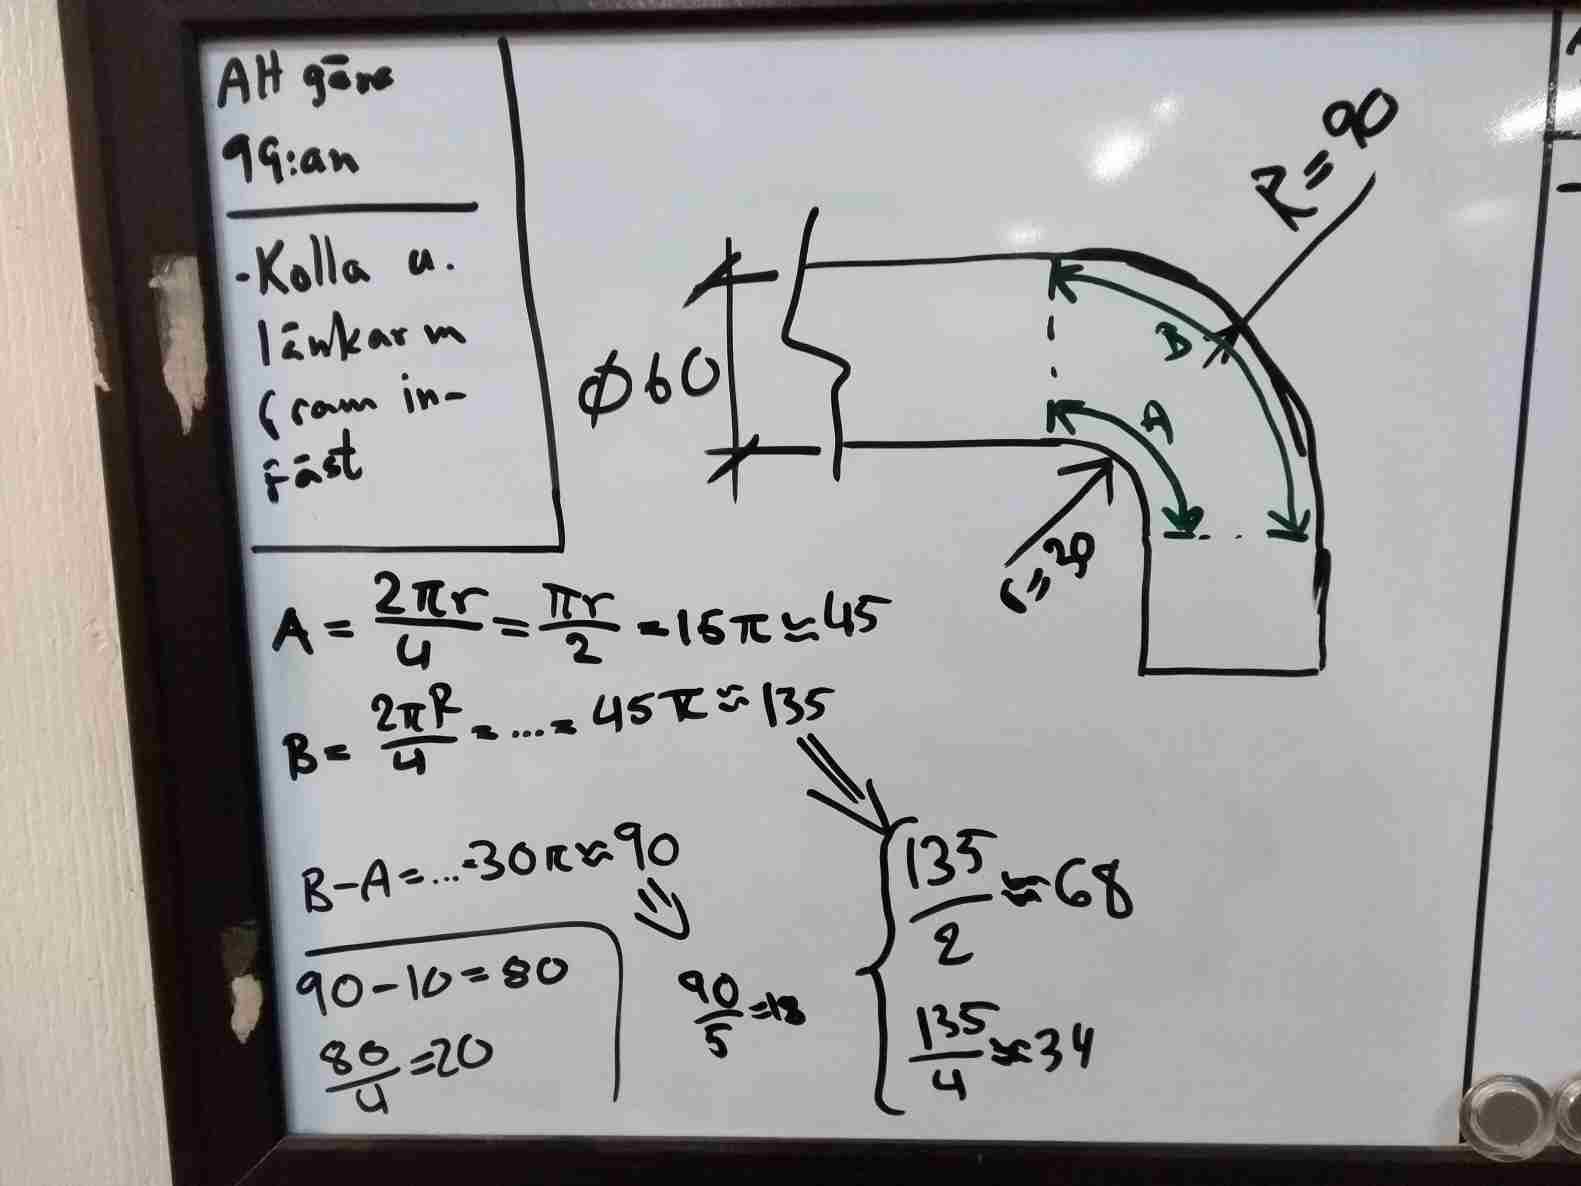 Att göra
99:an
-Kolla u.
länkarm
fram in-
fäst
R=90
ø60
B
A
r=30
A = 2πr/4 = πr/2 = 15π ≈ 45
B = 2πR/4 = ... = 45π ≈ 135
B-A = ... = 30π ≈ 90
135/2 ≈ 68
90-10=80
90/5=18
80/4=20
135/4 ≈ 34